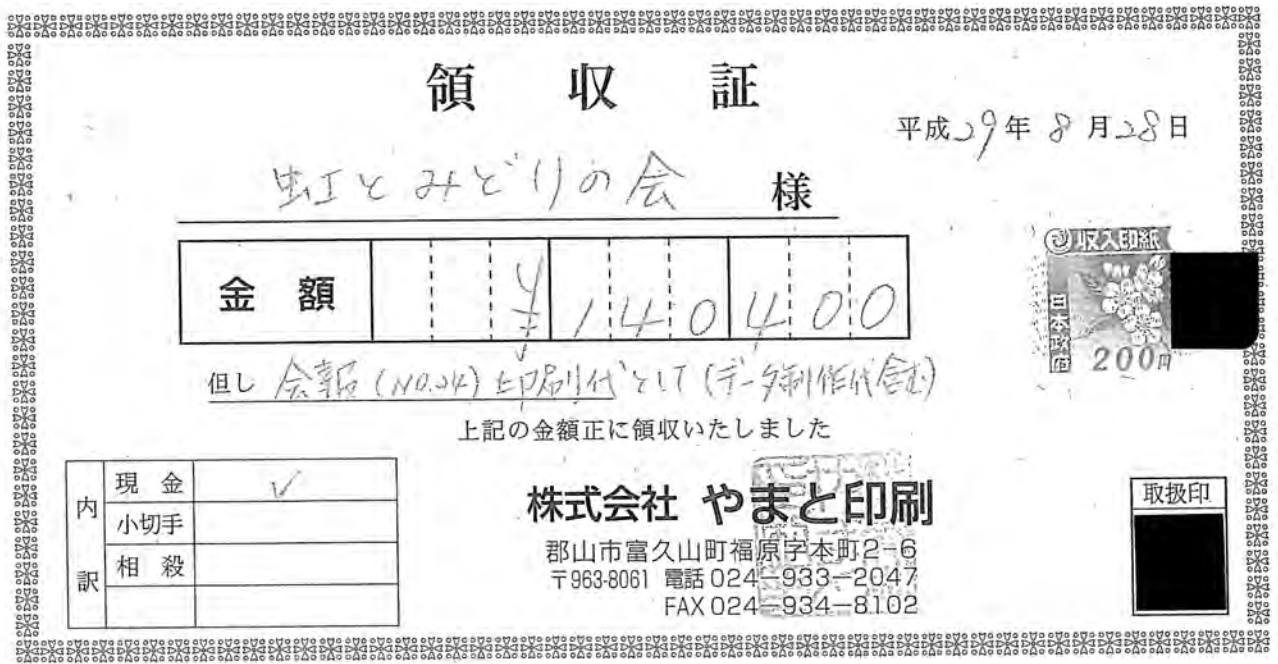 領収証
平成29年8月28日
虹とみどりの会 様
収入印紙
日本政府
200円
金額 ¥140400
但し 会報(NO.24)印刷代として(データ制作代含む)
上記の金額正に領収いたしました
内訳
現金 ✓
小切手
相殺
株式会社 やまと印刷
郡山市富久山町福原字本町2-6
〒963-8061 電話024-933-2047
FAX 024-934-8102
取扱印